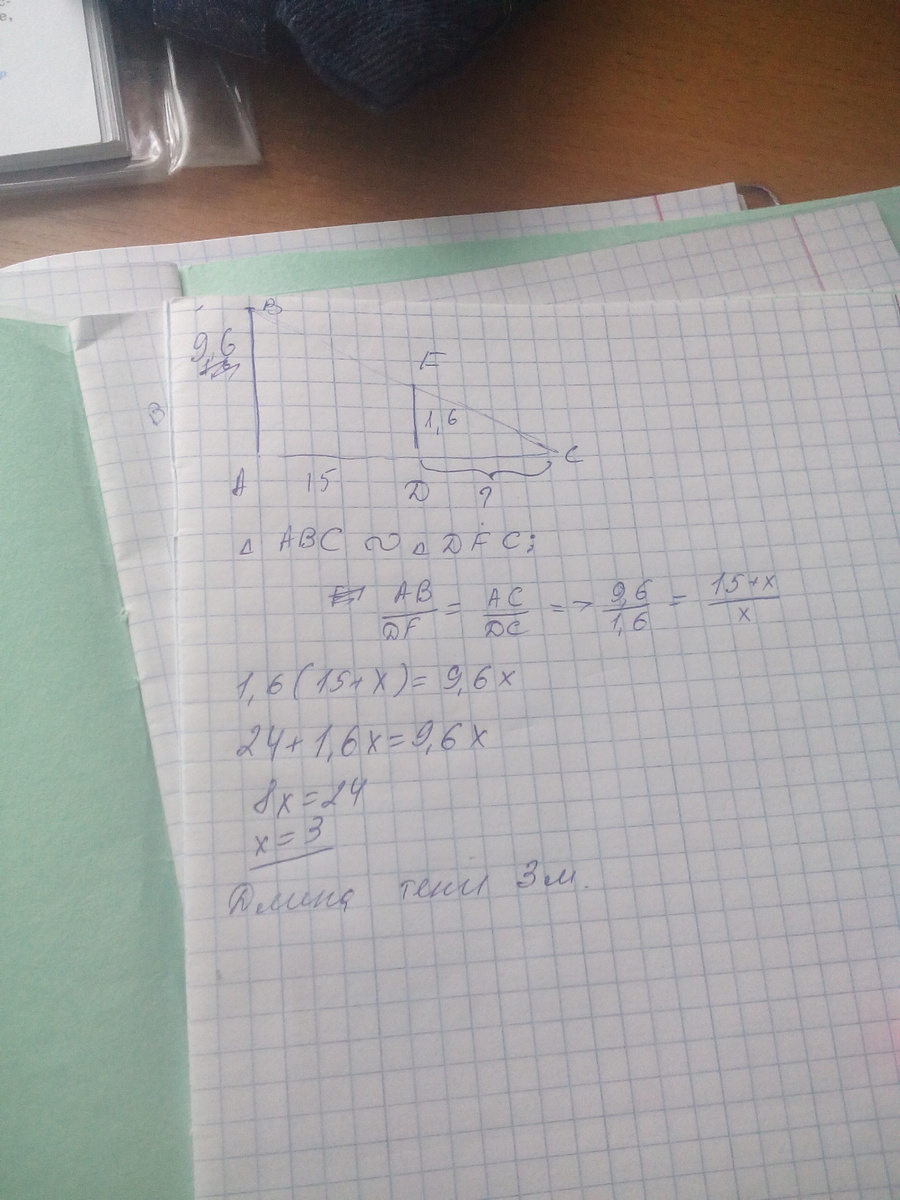 В
9,6
F
1,6
В
А 15 D ? С
△ ABC ∾ △ DFC;
AB/DF = AC/DC => 9,6/1,6 = 15+x/x
1,6(15+x)=9,6x
24+1,6x=9,6x
8x=24
x=3
Длина тени 3м.